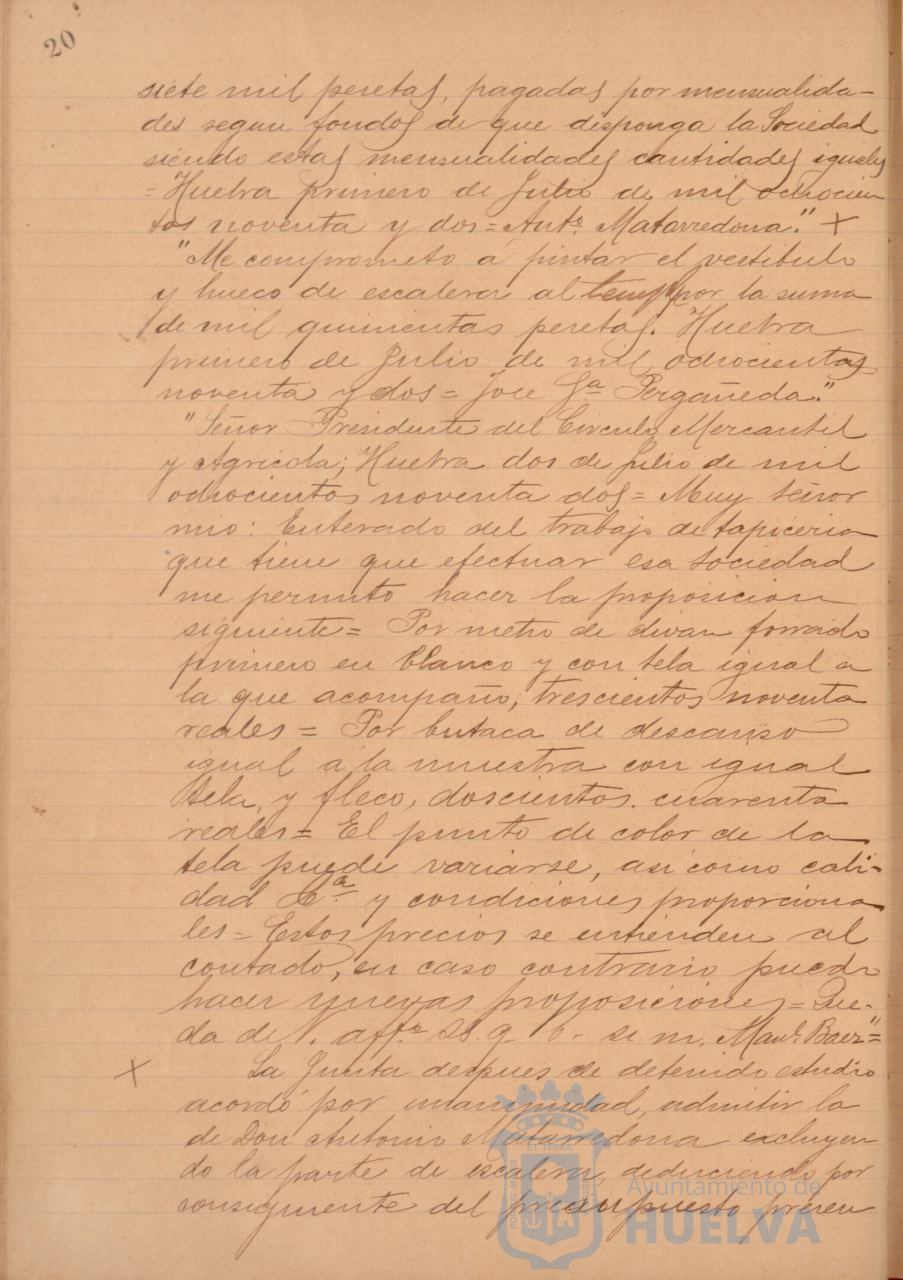 20
siete mil pesetas, pagadas por mensualida-
des segun fondos de que disponga la Sociedad
siendo estas mensualidades cantidades iguales
= Huelva primero de Julio de mil ochocien
tos noventa y dos = Antº. Matarredona." +
"Me comprometo á pintar el vestibulo
y hueco de escalera al temple por la suma
de mil quinientas pesetas. Huelva
primero de Julio de mil ochocientos
noventa y dos = Jose Gª Pergañeda."
"Señor Presidente del Circulo Mercantil
y Agricola; Huelva dos de Julio de mil
ochocientos noventa dos = Muy señor
mio: Enterado del trabajo de tapiceria
que tiene que efectuar esa sociedad
me permito hacer la proposicion
siguiente = Por metro de divan forrado
primero en blanco y con tela igual a
la que acompaño; trescientos noventa
reales = Por butaca de descanso
igual á la muestra con igual
tela, y fleco, doscientos cuarenta
reales = El punto de color de la
tela puede variarse, asi como cali-
dad &ª. y condiciones proporciona
les = Estos precios se entienden al
contado, en caso contrario puedo
hacer nuevas proposiciones = Que-
da de V. affº. S.S. q. b. s. m. Manl. Baez" =
+ La Junta despues de detenido estudio
acordó por unanimidad, admitir la
de Don Antonio Matarredona excluyen
do la parte de escalera, deduciendo por
consiguiente del presupuesto presen
Ayuntamiento de
HUELVA